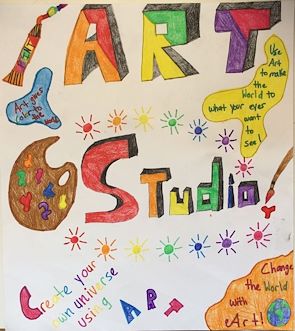 ART
Art gives
color to
the world
Use
Art
to make
the
World to
what your eyes
want
to
see!
Studio!
Create your
own universe
using ART
Change
the World
with
eArt!